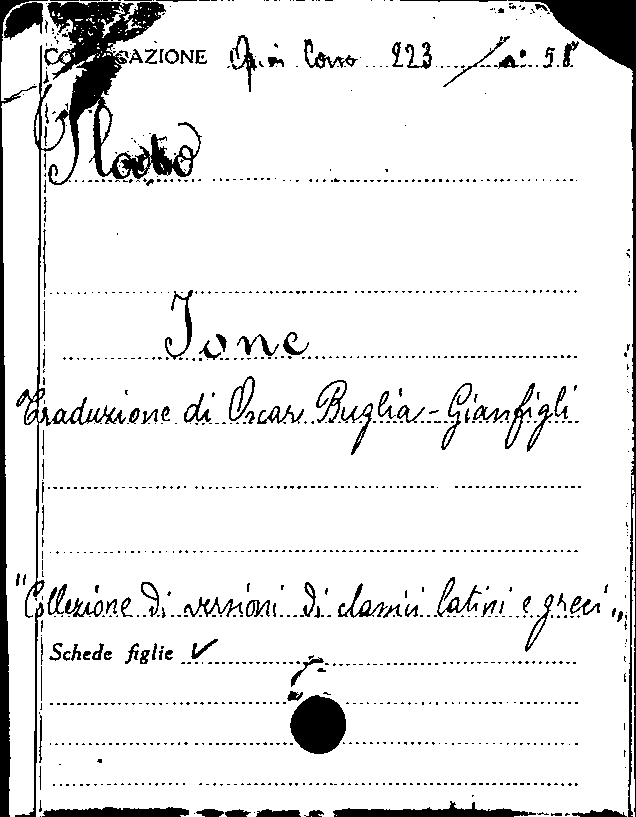 COLLOCAZIONE Op. in Corso 223 / n° 58
Ione
Traduzione di Oscar Buglia-Gianfigli
"Collezione di versioni di classici latini e greci„
Schede figlie ✓